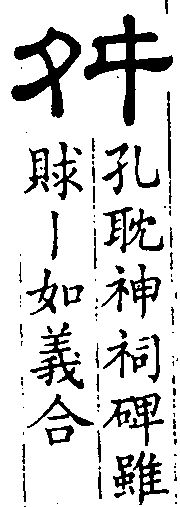 舛
孔耽神祠碑雖
賕丨如義合